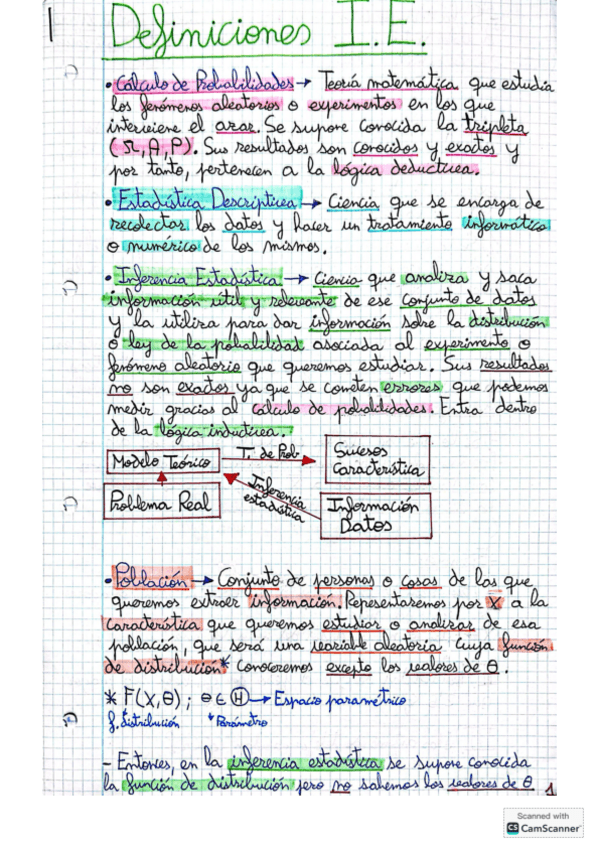 Definiciones I.E.
• Cálculo de Probabilidades → Teoría matemática que estudia
los fenómenos aleatorios o experimentos en los que
interviene el azar. Se supone conocida la tripleta
(Ω, A, P). Sus resultados son conocidos y exactos y
por tanto, pertenecen a la lógica deductiva.
• Estadística Descriptiva → Ciencia que se encarga de
recolectar los datos y hacer un tratamiento informático
o numérico de los mismos.
• Inferencia Estadística → Ciencia que analiza y saca
información útil y relevante de ese conjunto de datos
y la utiliza para dar información sobre la distribución
o ley de la probabilidad asociada al experimento o
fenómeno aleatorio que queremos estudiar. Sus resultados
no son exactos ya que se cometen errores que podemos
medir gracias al cálculo de probabilidades. Entra dentro
de la lógica inductiva.
Modelo Teórico
T. de Prob.
Sucesos
Característica
Problema Real
Inferencia
estadística
Información
Datos
• Población → Conjunto de personas o cosas de las que
queremos extraer información. Representaremos por X a la
característica que queremos estudiar o analizar de esa
población, que será una variable aleatoria cuya función
de distribución* conoceremos excepto los valores de θ.
* F(X,θ) ; θ ∈ Ⓗ → Espacio paramétrico
f. distribución * Parámetro
- Entonces, en la inferencia estadística se supone conocida
la función de distribución pero no sabemos los valores de θ
1
Scanned with
CS CamScanner